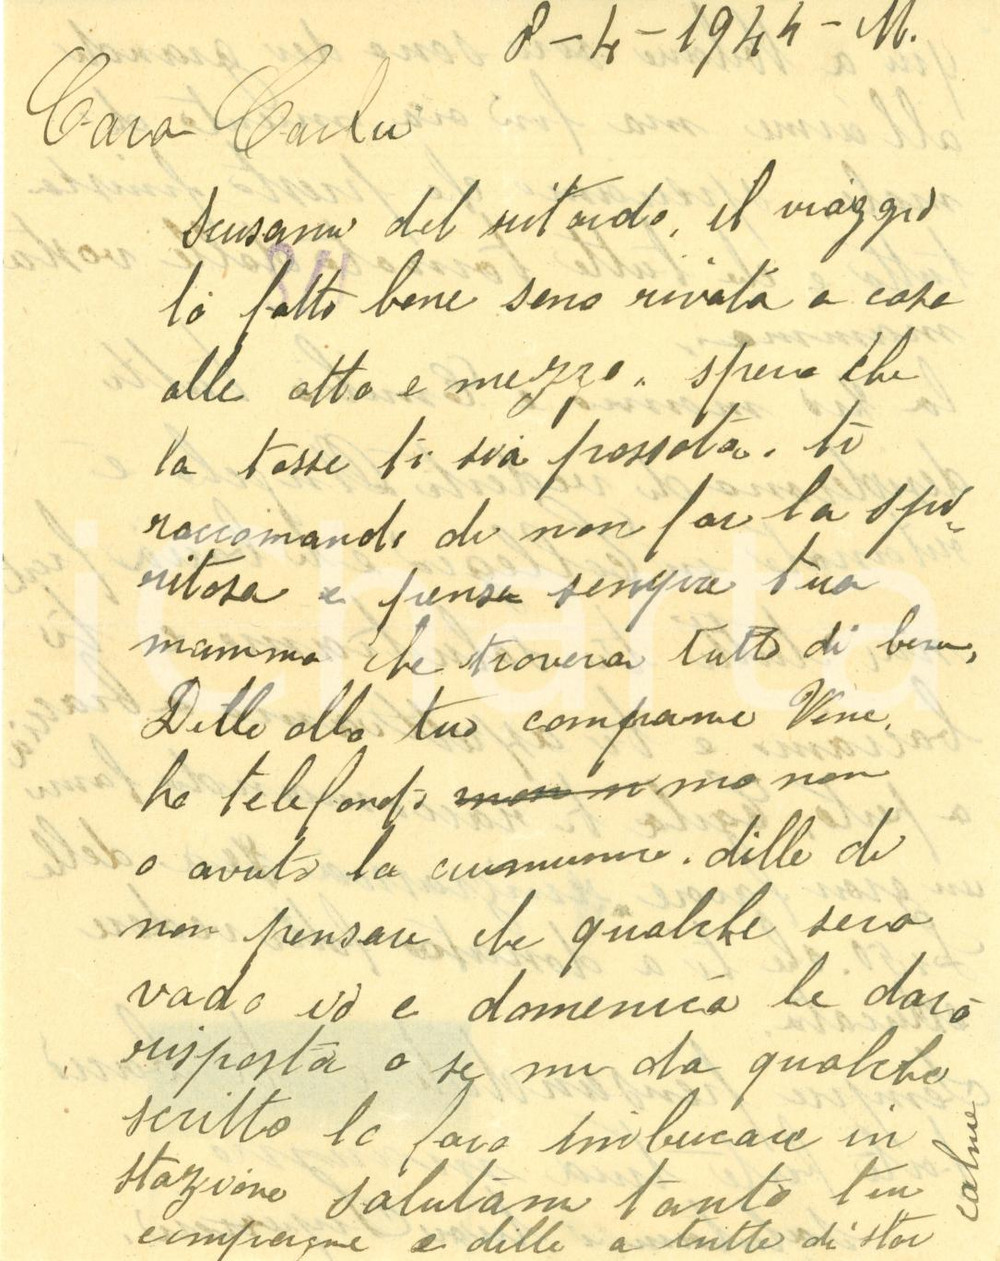 8-4-1944-M.
Cara Carlu
scusami del ritardo, il viaggio
lo fatto bene sono rivata a casa
alle otto e mezzo. spero che
la tosse ti sia passata. ti
raccomando di non far la spi-
ritosa e pensa sempre tua
mamma che troverai tutto di bene,
Dille alla tua compagne
ha telefonato ma non
o avuto la dille di
non pensare che qualche sera
vado io e domenica le darò
risposta o se mi da qualche
scritto lo farò imbucare in
stazione salutami tanto tue
compagne e dille a tutte di star
calme
icharta